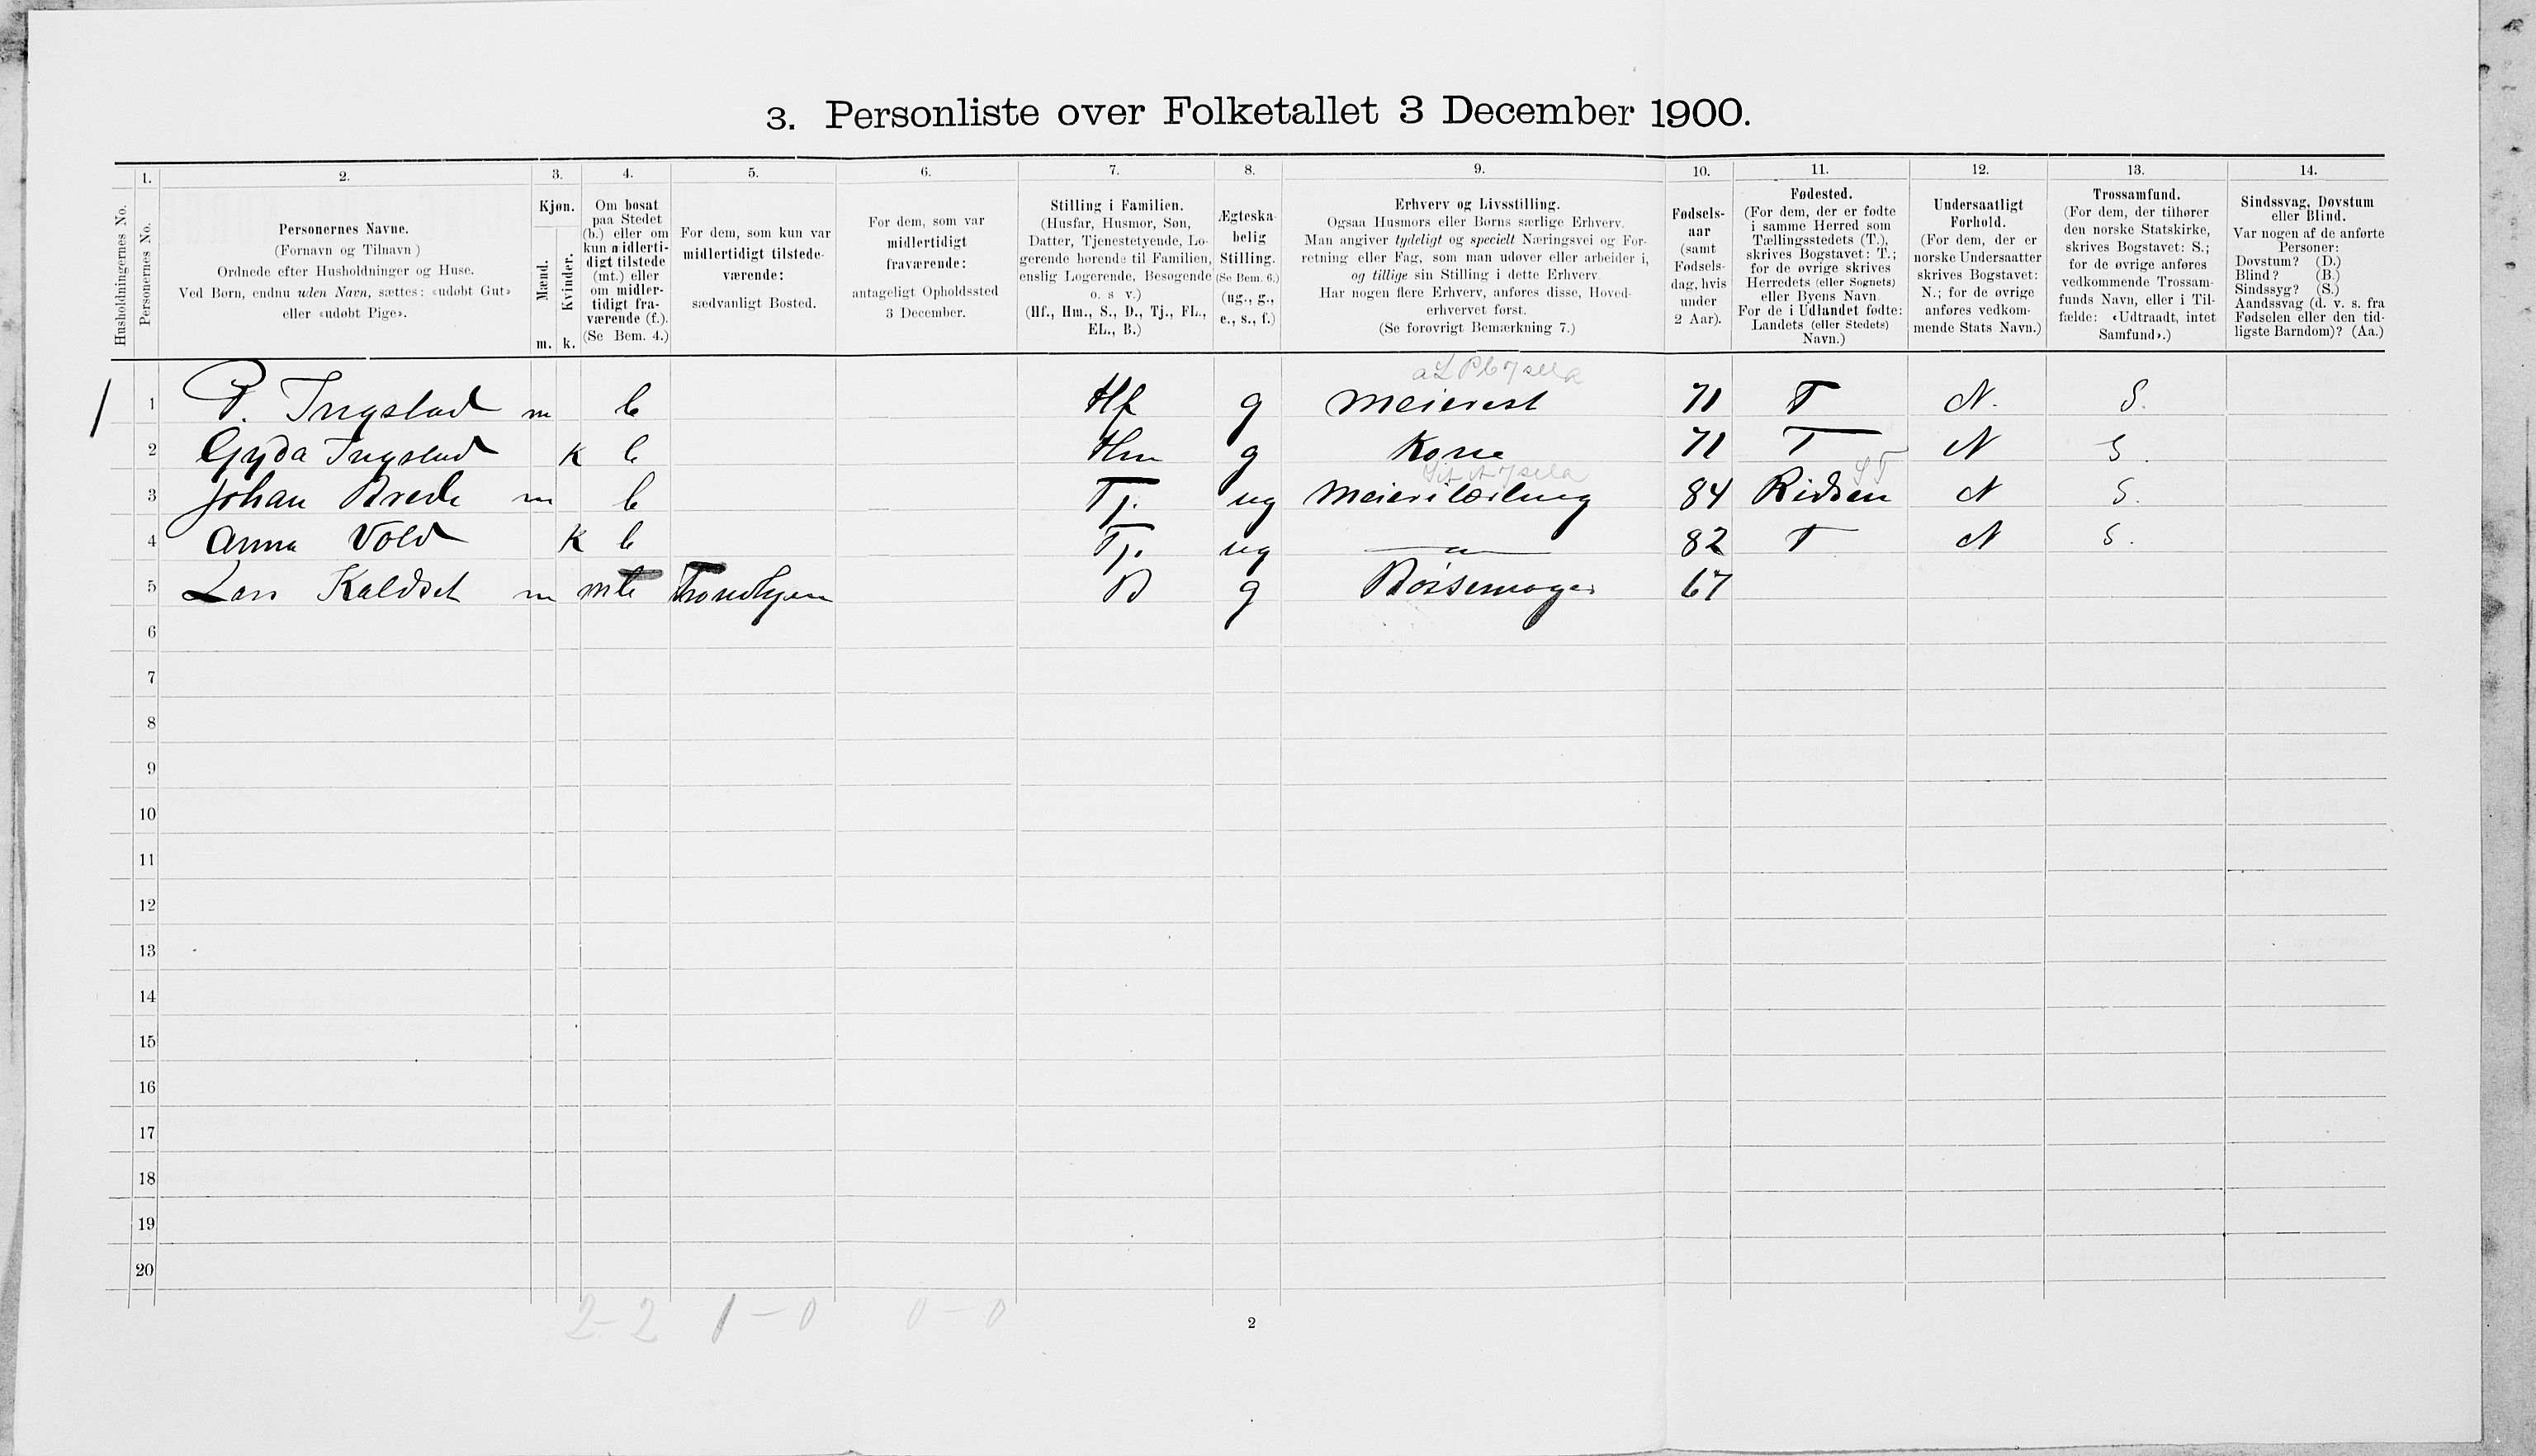 3. Personliste over Folketallet 3 December 1900.
1. 2. 3. 4. 5. 6. 7. 8. 9. 10. 11. 12. 13. 14.
Husholdningernes No.
Personernes No.
Personernes Navne.
(Fornavn og Tilnavn)
Ordnede efter Husholdninger og Huse.
Ved Børn, endnu uden Navn, sættes: «udøbt Gut»
eller «udøbt Pige».
Kjøn.
Mænd.
Kvinder.
m. k.
Om bosat
paa Stedet
(b.) eller om
kun midlerti-
digt tilstede
(mt.) eller
om midler-
tidigt fra-
værende (f.).
(Se Bem. 4.)
For dem, som kun var
midlertidigt tilstede-
værende:
sædvanligt Bosted.
For dem, som var
midlertidigt
fraværende:
antageligt Opholdssted
3 December.
Stilling i Familien.
(Husfar, Husmor, Søn,
Datter, Tjenestetyende, Lo-
gerende hørende til Familien,
enslig Logerende, Besøgende
o. s. v.)
(Hf., Hm., S., D., Tj., FL.,
EL., B.)
Ægteska-
belig
Stilling.
(Se Bem. 6.)
(ug., g.,
e., s., f.)
Erhverv og Livsstilling.
Ogsaa Husmors eller Børns særlige Erhverv.
Man angiver tydeligt og specielt Næringsvei og For-
retning eller Fag, som man udøver eller arbeider i,
og tillige sin Stilling i dette Erhverv.
Har nogen flere Erhverv, anføres disse, Hoved-
erhvervet først.
(Se forøvrigt Bemærkning 7.)
Fødsels-
aar
(samt
Fødsels-
dag, hvis
under
2 Aar).
Fødested.
(For dem, der er fødte
i samme Herred som
Tællingsstedets (T.),
skrives Bogstavet: T.;
for de øvrige skrives
Herredets (eller Sognets)
eller Byens Navn.
For de i Udlandet fødte:
Landets (eller Stedets)
Navn.)
Undersaatligt
Forhold.
(For dem, der er
norske Undersaatter
skrives Bogstavet:
N.; for de øvrige
anføres vedkom-
mende Stats Navn.)
Trossamfund.
(For dem, der tilhører
den norske Statskirke,
skrives Bogstavet: S.;
for de øvrige anføres
vedkommende Trossam-
funds Navn, eller i Til-
fælde: «Udtraadt, intet
Samfund».)
Sindssvag, Døvstum
eller Blind.
Var nogen af de anførte
Personer:
Døvstum? (D.)
Blind? (B.)
Sindssyg? (S.)
Aandssvag (d. v. s. fra
Fødselen eller den tid-
ligste Barndom)? (Aa.)
1 1 P. Ingstad m b Hf g Meierest 71 T N. S.
2 Gyda Ingstad K b Hm g Kone 71 T N S.
3 Johan Brede m b Tj. ug Meierilærling 84 N S.
4 Anna Vold K b Tj. ug 82 T N S.
5 Lars Kaldset m mt Trondhjem B g Børsemager 67
6
7
8
9
10
11
12
13
14
15
16
17
18
19
20
2-2 1-0 0-0
2